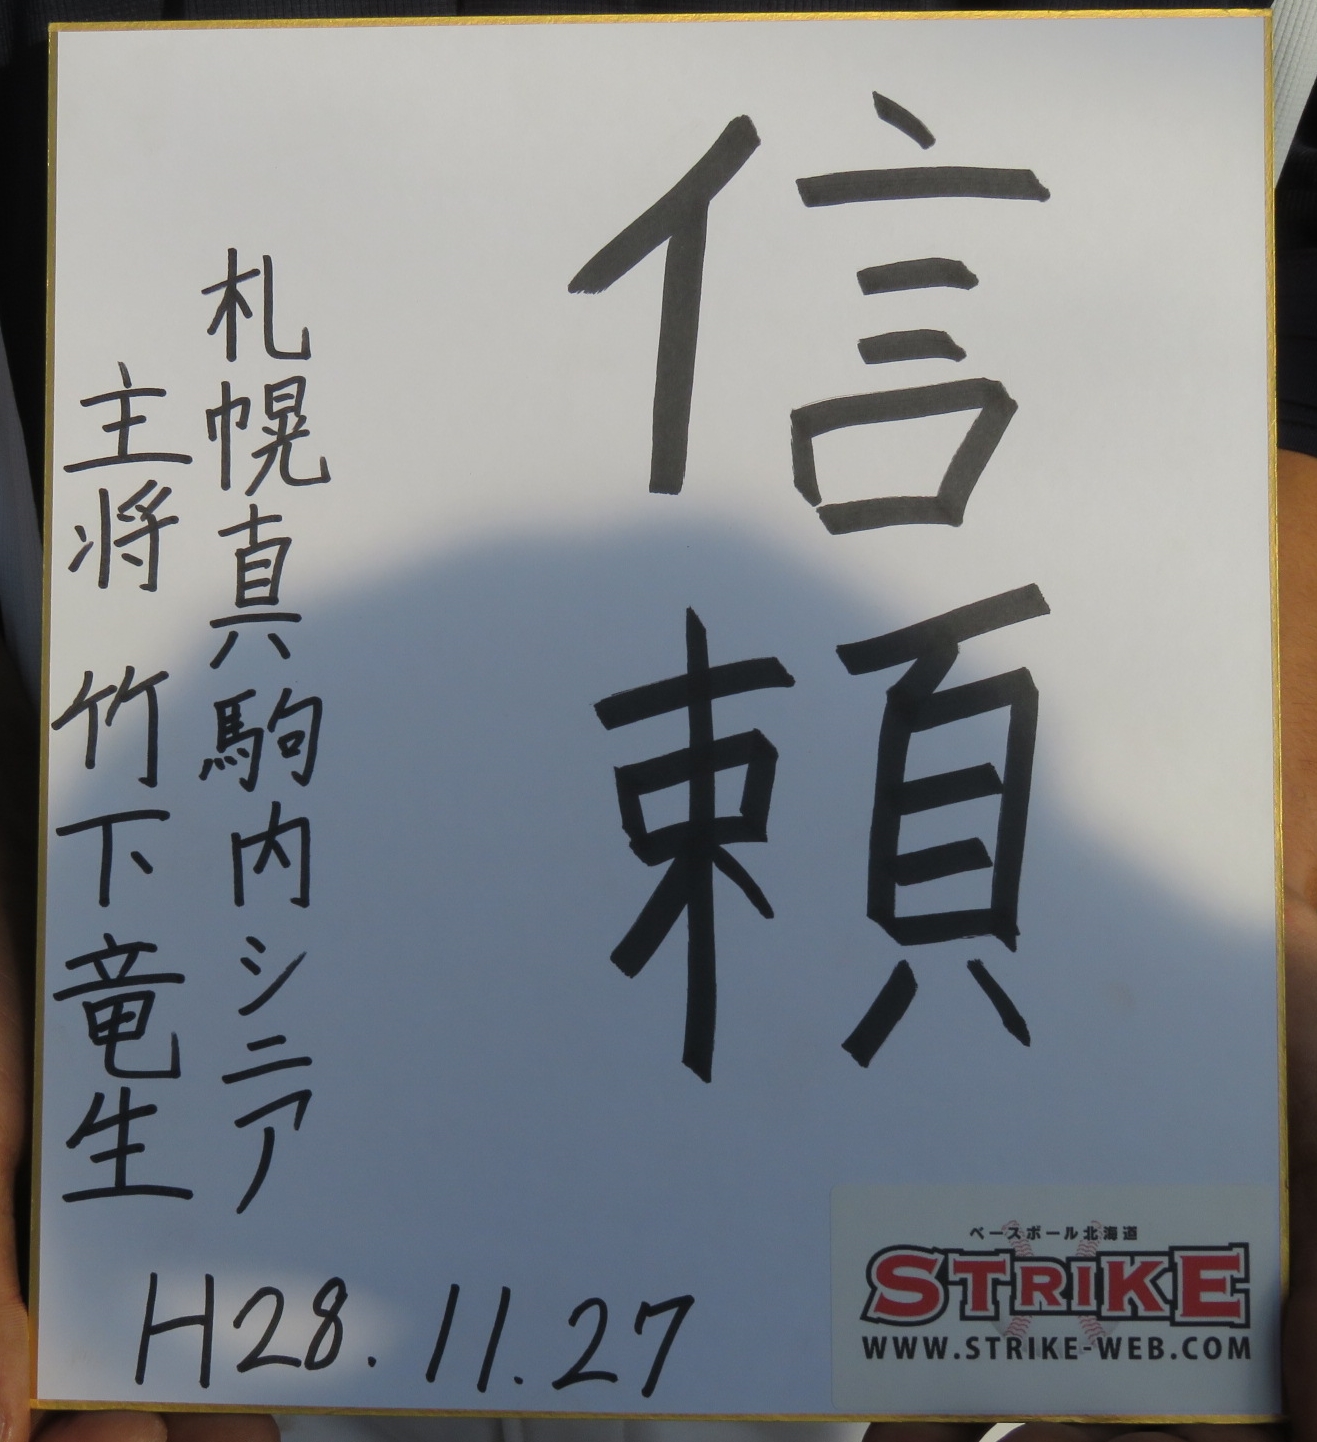 信頼
札幌真駒内シニア
主将 竹下竜生
H28.11.27
ベースボール北海道
STRIKE
WWW.STRIKE-WEB.COM